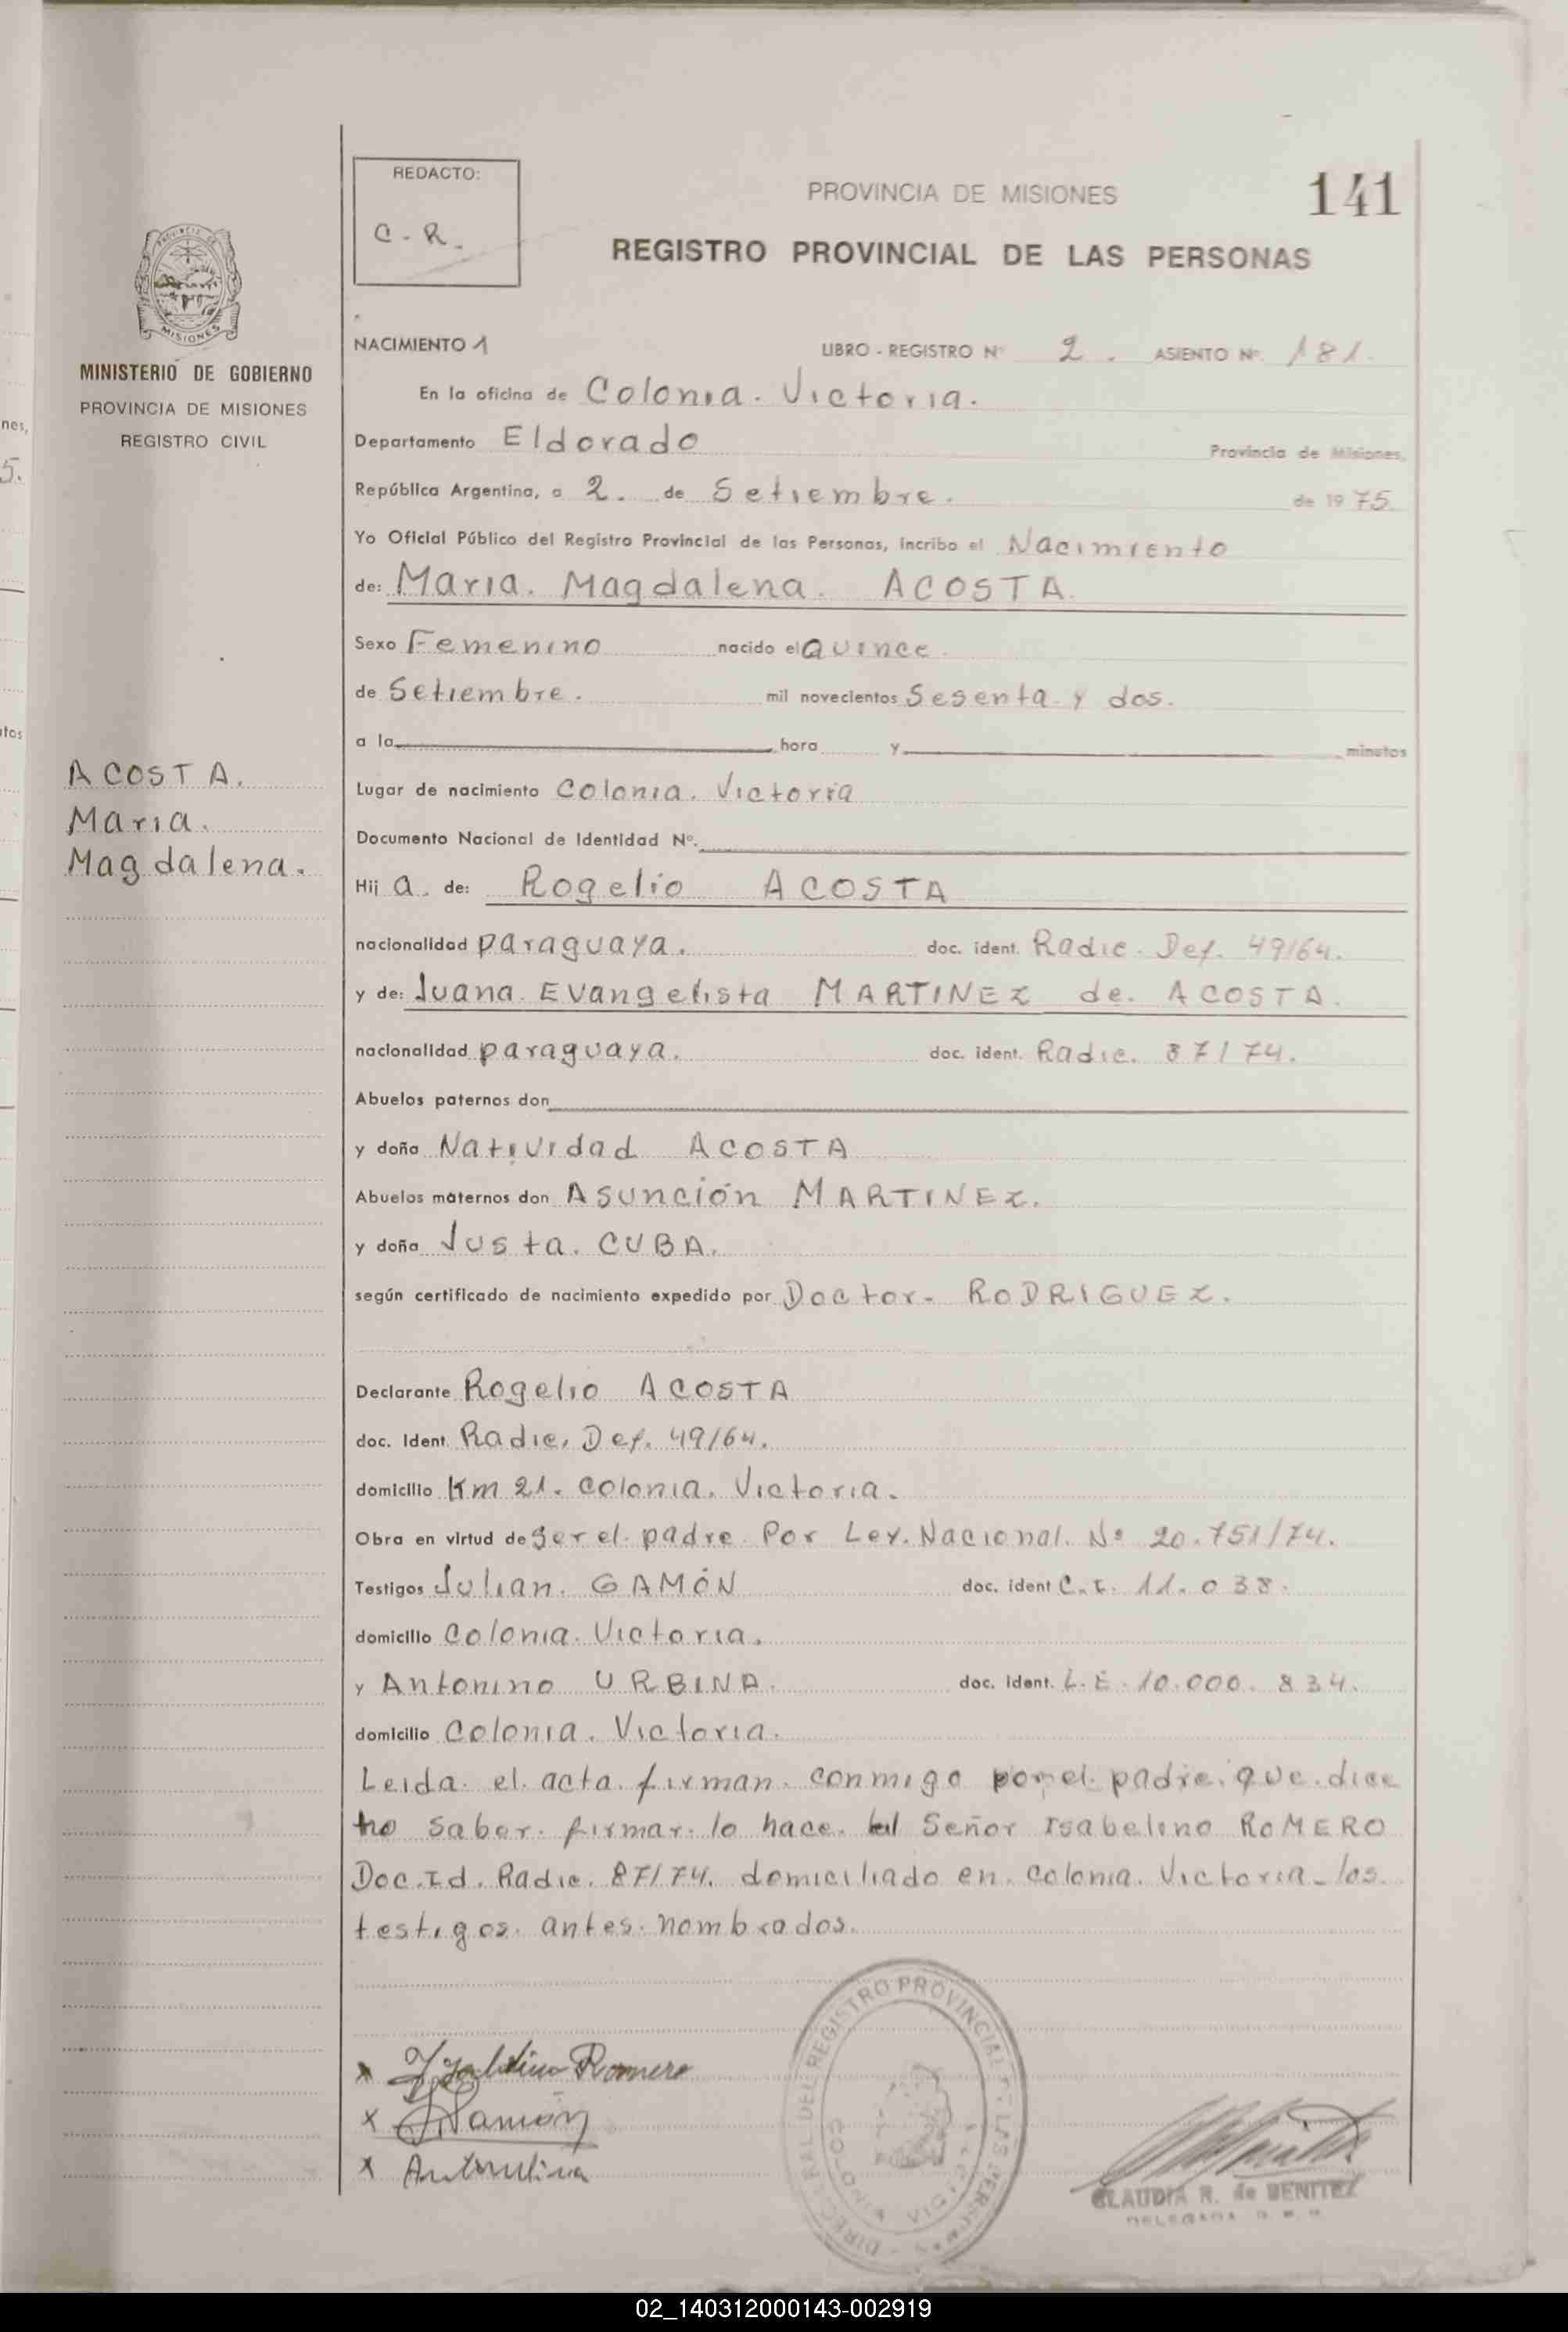 REDACTO:
C. R.
PROVINCIA DE MISIONES
141
REGISTRO PROVINCIAL DE LAS PERSONAS
MISIONES
MINISTERIO DE GOBIERNO
PROVINCIA DE MISIONES
REGISTRO CIVIL
NACIMIENTO 1 LIBRO - REGISTRO Nº 2. ASIENTO Nº. 181.
En la oficina de Colonia. Victoria.
Departamento Eldorado Provincia de Misiones,
República Argentina, a 2. de Setiembre. de 1975.
Yo Oficial Público del Registro Provincial de las Personas, incribo el Nacimiento
de: Maria. Magdalena. ACOSTA.
Sexo Femenino nacido el Quince.
de Setiembre. mil novecientos Sesenta y dos.
a la hora y minutos
Lugar de nacimiento Colonia. Victoria
Documento Nacional de Identidad Nº.
ACOSTA.
Maria.
Magdalena.
Hij a. de: Rogelio ACOSTA
nacionalidad paraguaya. doc. ident. Radic. Def. 49/64.
y de: Juana Evangelista MARTINEZ de. ACOSTA.
nacionalidad paraguaya. doc. ident. Radic. 87/74.
Abuelos paternos don
y doña Natividad ACOSTA
Abuelos maternos don Asunción MARTINEZ.
y doña Justa. CUBA.
según certificado de nacimiento expedido por Doctor- RODRIGUEZ.
Declarante Rogelio ACOSTA
doc. Ident. Radic. Def. 49/64.
domicilio Km 21. Colonia. Victoria.
Obra en virtud de Ser el. padre. Por Ley. Nacional. Nº 20.751/74.
Testigos Julian. GAMÓN doc. ident C.I. 11.038.
domicilio Colonia. Victoria.
y Antonino URBINA. doc. Ident. L.E. 10.000.834.
domicilio Colonia. Victoria.
Leida. el. acta. firman. conmigo por el. padre. que. dice
no saber. firmar. lo hace. el Señor Isabelino ROMERO
Doc. Id. Radic. 87/74. domiciliado en. colonia. Victoria_ los.
testigos. antes. nombrados.
x Romero
x Gamón
x
CLAUDIA R. de BENITEZ
DELEGADA
02_140312000143-002919